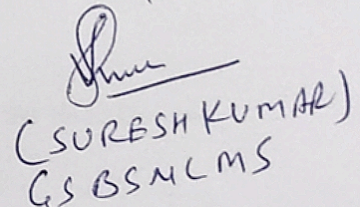 (SURESH KUMAR)
GSBSNLMS